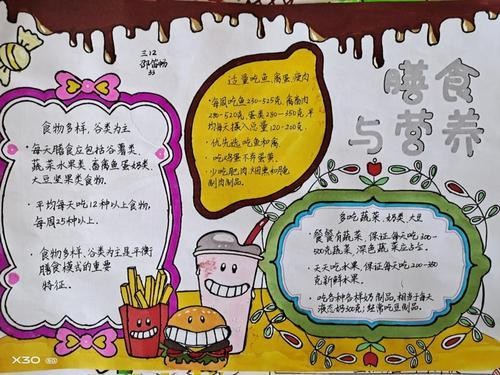 三12
33
膳食
与营养
食物多样，谷类为主
·每天膳食应包括谷薯类、
蔬菜水果类、畜禽鱼蛋奶类、
大豆坚果类食物。
·平均每天吃12种以上食物，
每周25种以上。
·食物多样、谷类为主是平衡
膳食模式的重要
特征。
适量吃鱼、禽、蛋、瘦肉
·每周吃鱼280-525克，畜禽肉
280-520克，蛋类280-350克，平
均每天摄入总量120-200克。
·优先选吃鱼和禽。
·吃鸡蛋不弃蛋黄。
·少吃肥肉、烟熏和腌
制肉制品。
多吃蔬菜、奶类、大豆
·餐餐有蔬菜，保证每天吃300-
500克蔬菜，深色蔬菜应占½。
·天天吃水果，保证每天吃200-350
克新鲜水果。
·吃各种各样奶制品，相当于每天
液态奶300克；经常吃豆制品。
X30 5G